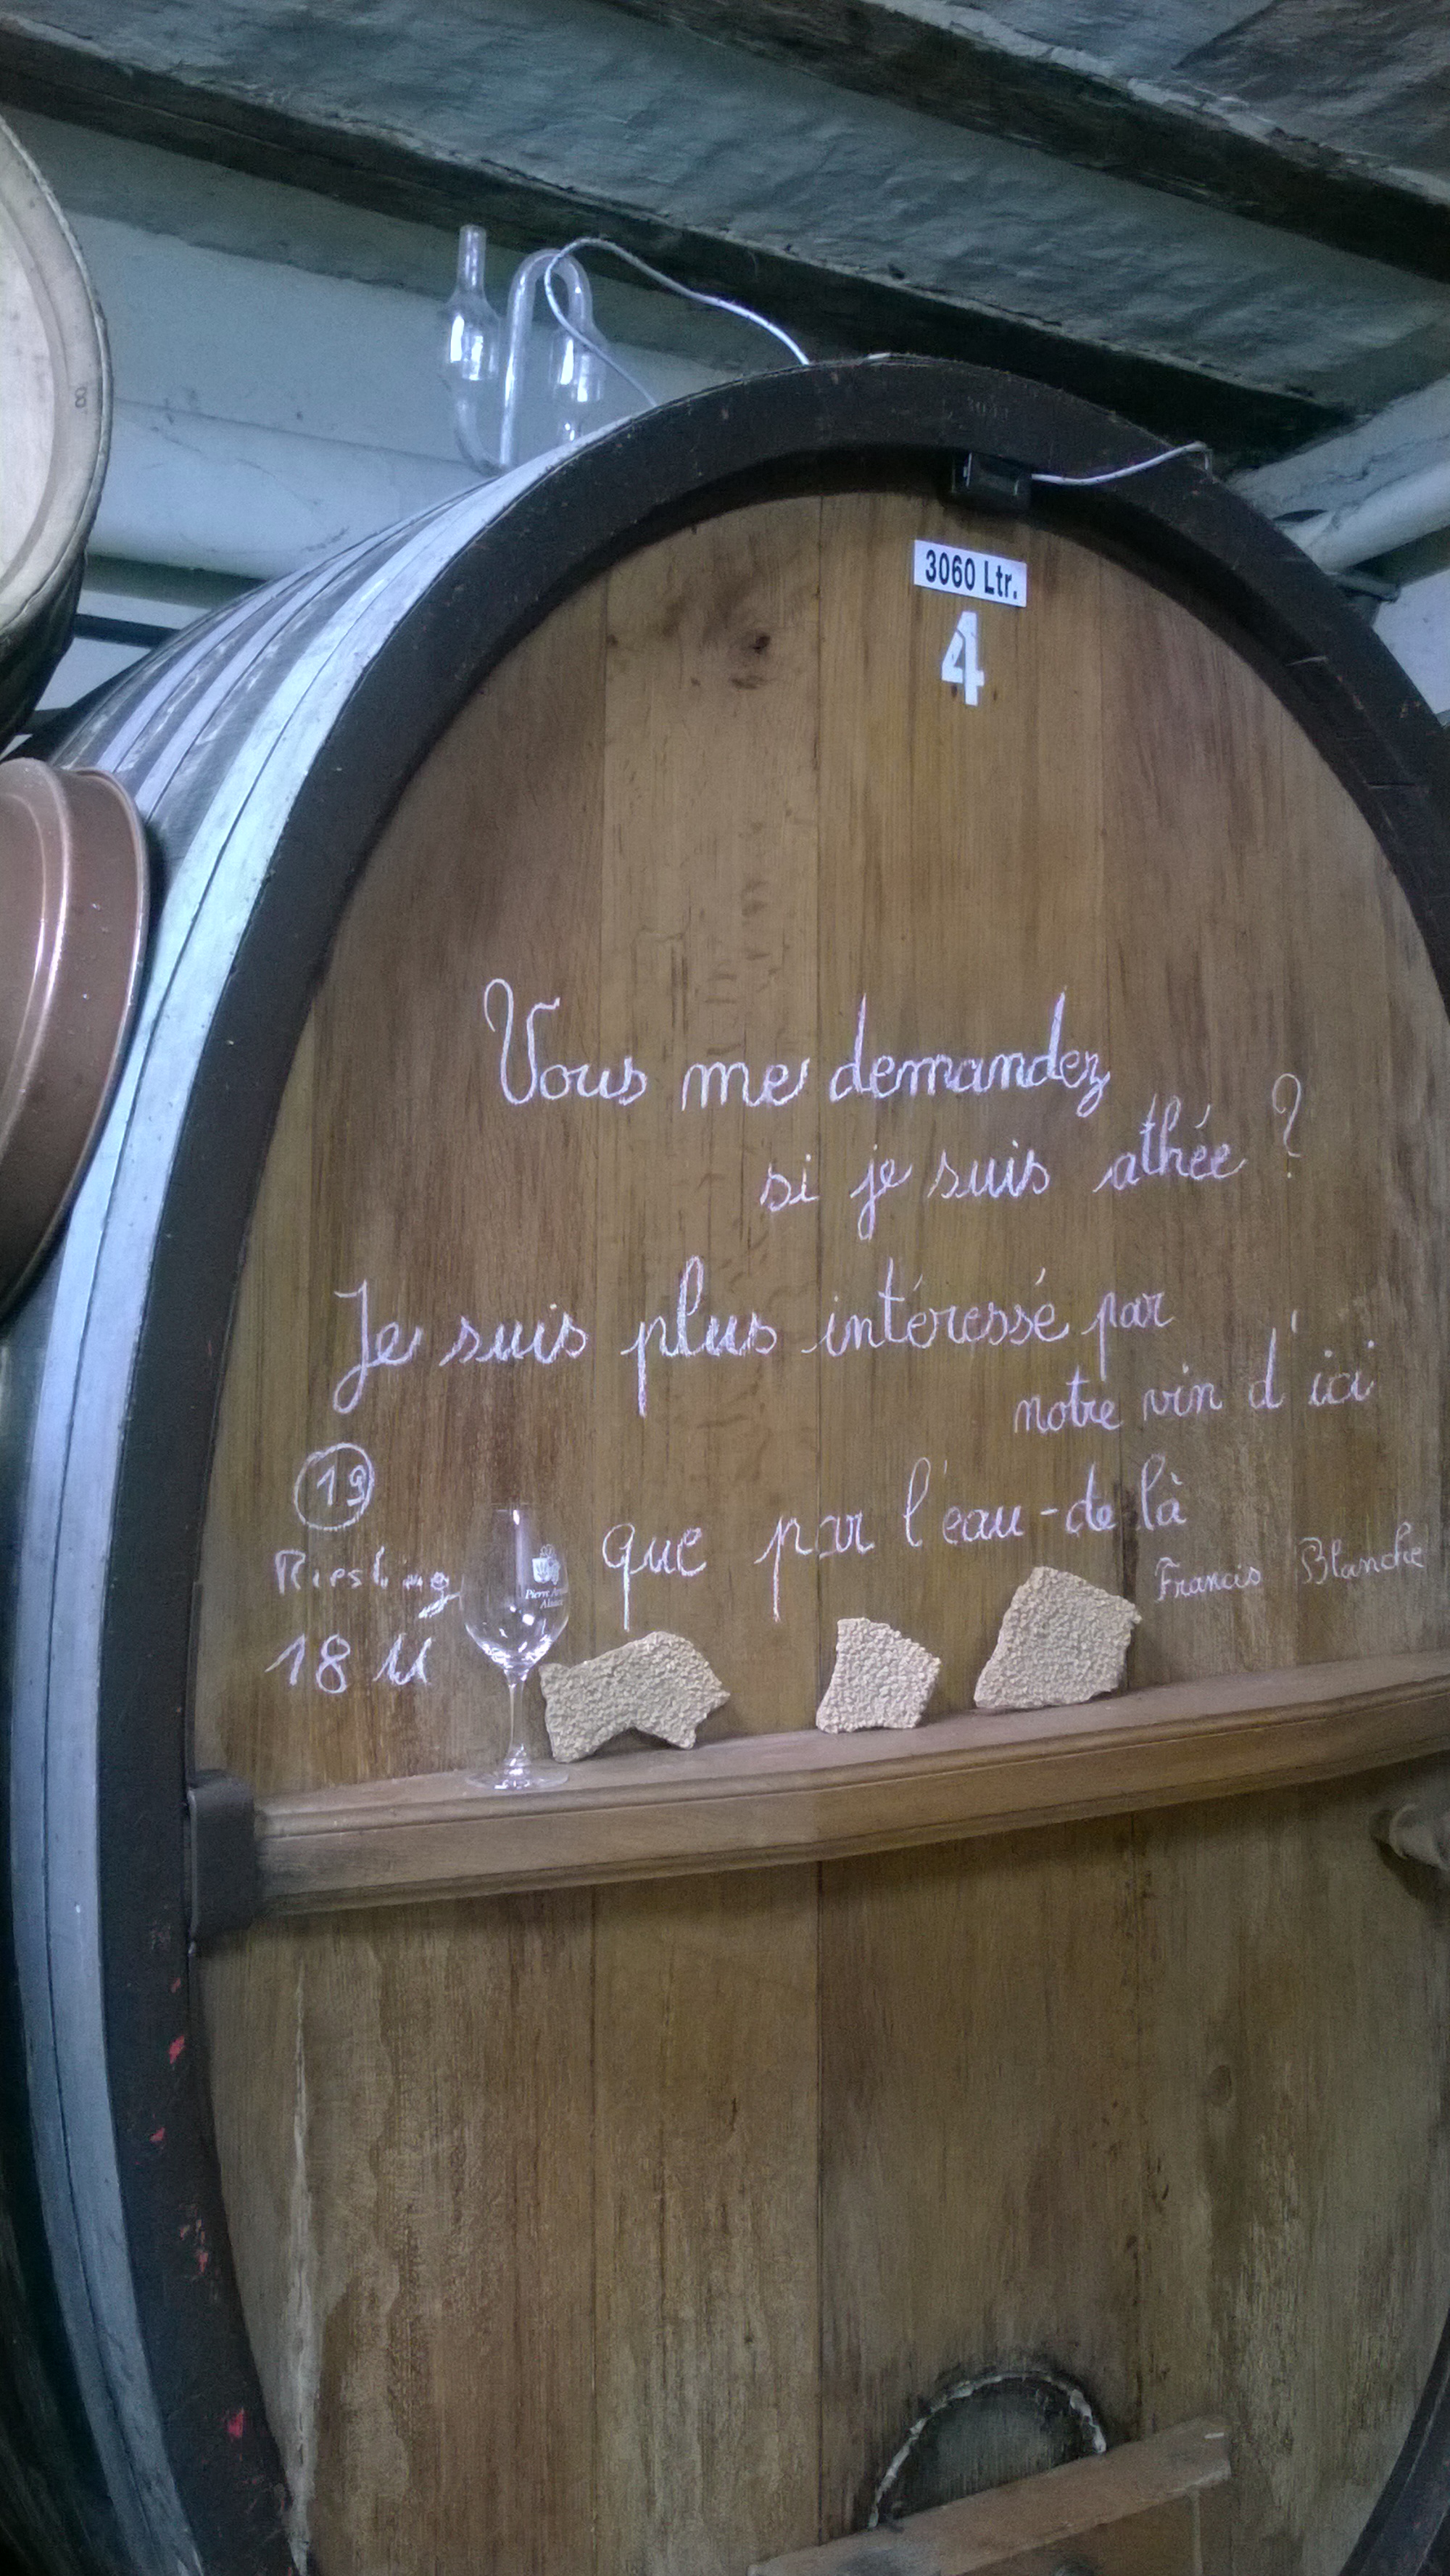 8
3060 Ltr.
4
Vous me demandez
si je suis athée ?
Je suis plus intéressé par
notre vin d'ici
que par l'eau-de là
Francis Blanche
19
Riesling
18
Pierre
Alsace